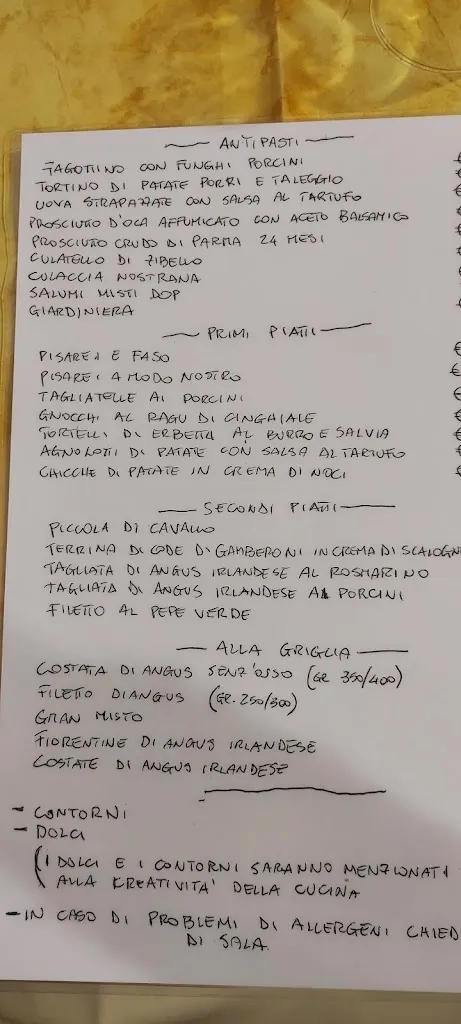 ANTIPASTI €
FAGOTTINO CON FUNGHI PORCINI €
TORTINO DI PATATE PORRI E TALEGGIO €
UOVA STRAPAZZATE CON SALSA AL TARTUFO €
PROSCIUTTO D'OCA AFFUMICATO CON ACETO BALSAMICO €
PROSCIUTTO CRUDO DI PARMA 24 MESI €
CULATELLO DI ZIBELLO
CULACCIA NOSTRANA
SALUMI MISTI DOP
GIARDINIERA
PRIMI PIATTI
PISAREI E FASO €
PISAREI A MODO NOSTRO €
TAGLIATELLE AI PORCINI €
GNOCCHI AL RAGU DI CINGHIALE €
TORTELLI DI ERBETTA AL BURRO E SALVIA €
AGNOLOTTI DI PATATE CON SALSA AL TARTUFO €
CHICCHE DI PATATE IN CREMA DI NOCI €
SECONDI PIATTI
PICCOLA DI CAVALLO
TERRINA DI CODE DI GAMBERONI IN CREMA DI SCALOGN
TAGLIATA DI ANGUS IRLANDESE AL ROSMARINO
TAGLIATA DI ANGUS IRLANDESE AI PORCINI
FILETTO AL PEPE VERDE
ALLA GRIGLIA
COSTATA DI ANGUS SENZ'OSSO (GR 350/400)
FILETTO DI ANGUS (GR. 250/300)
GRAN MISTO
FIORENTINE DI ANGUS IRLANDESE
COSTATE DI ANGUS IRLANDESE
- CONTORNI
- DOLCI
(I DOLCI E I CONTORNI SARANNO MENZIONATI
ALLA CREATIVITA' DELLA CUCINA
- IN CASO DI PROBLEMI DI ALLERGENI CHIED
DI SALA.